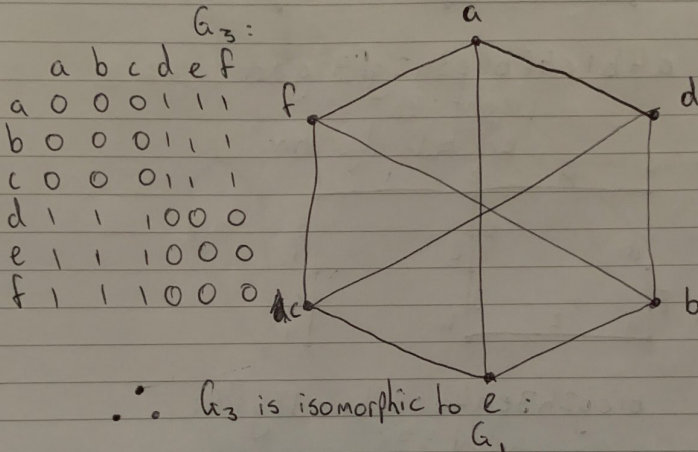 G₃:
a b c d e f
a 0 0 0 1 1 1
b 0 0 0 1 1 1
c 0 0 0 1 1 1
d 1 1 1 0 0 0
e 1 1 1 0 0 0
f 1 1 1 0 0 0
a
f
d
c
b
∴ G₃ is isomorphic to e :
G₁